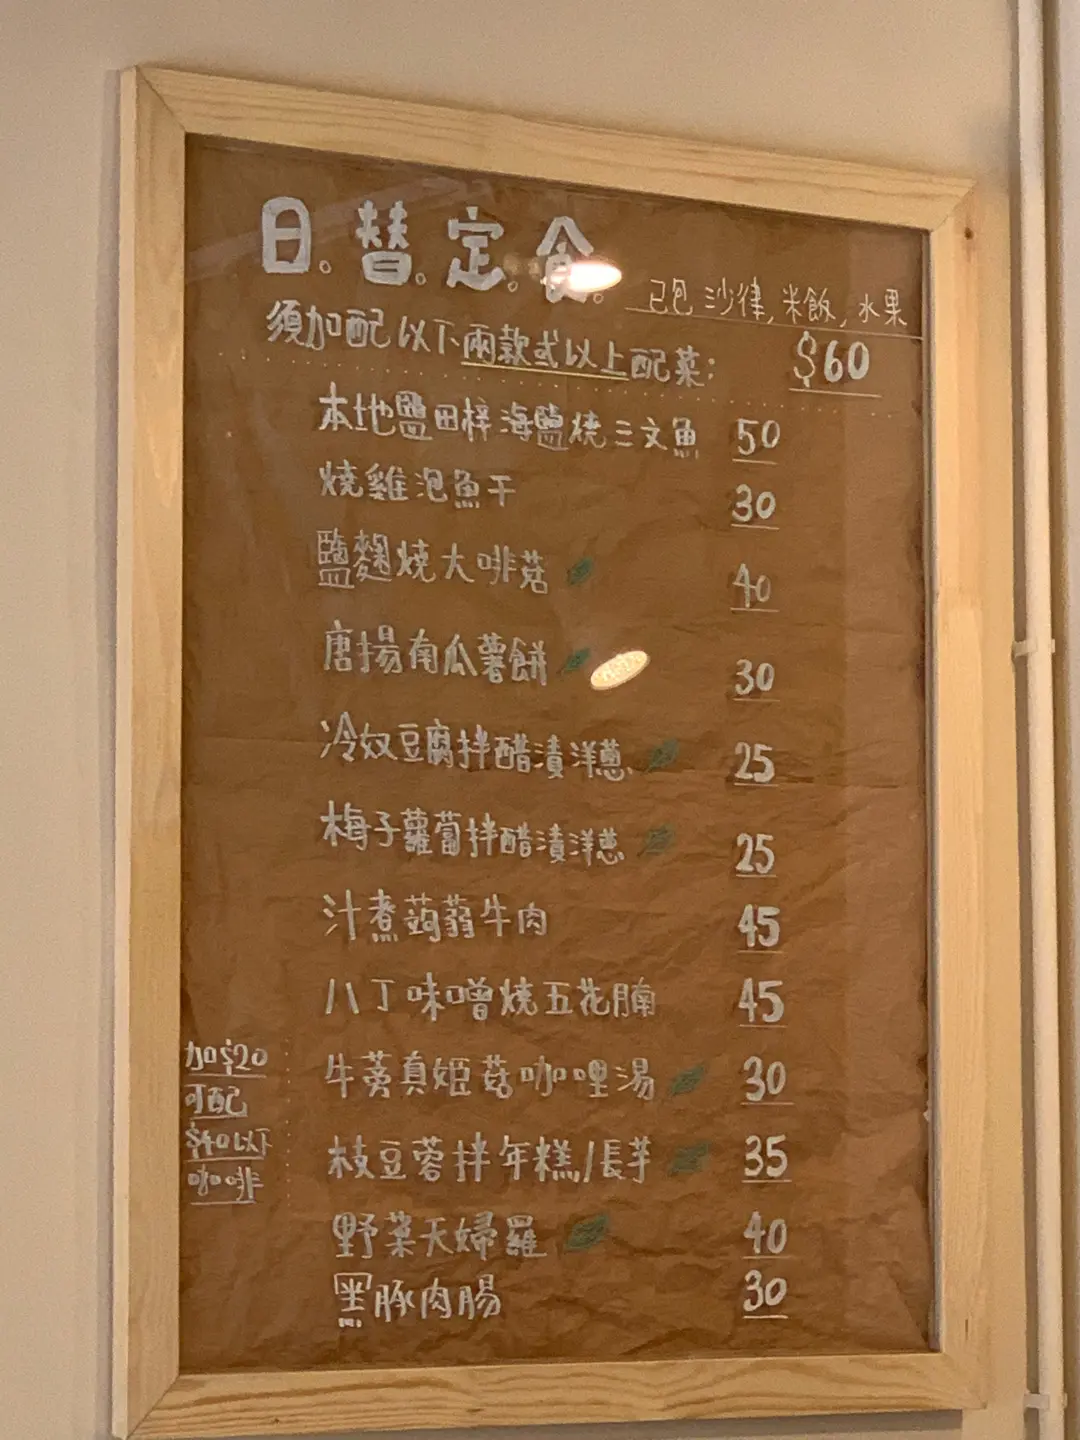 日。替。定。食。
已包 沙律, 米飯, 水果
須加配以下兩款或以上配菜: $60
本地鹽田梓海鹽燒三文魚 50
燒雞泡魚干 30
鹽麴燒大啡菇 40
唐揚南瓜薯餅 30
冷奴豆腐拌醋漬洋蔥 25
梅子蘿蔔拌醋漬洋蔥 25
汁煮蒟蒻牛肉 45
八丁味噌燒五花腩 45
牛蒡真姬菇咖哩湯 30
枝豆蓉拌年糕/長芋 35
野菜天婦羅 40
黑豚肉腸 30
加$20
可配
$40以下
咖啡